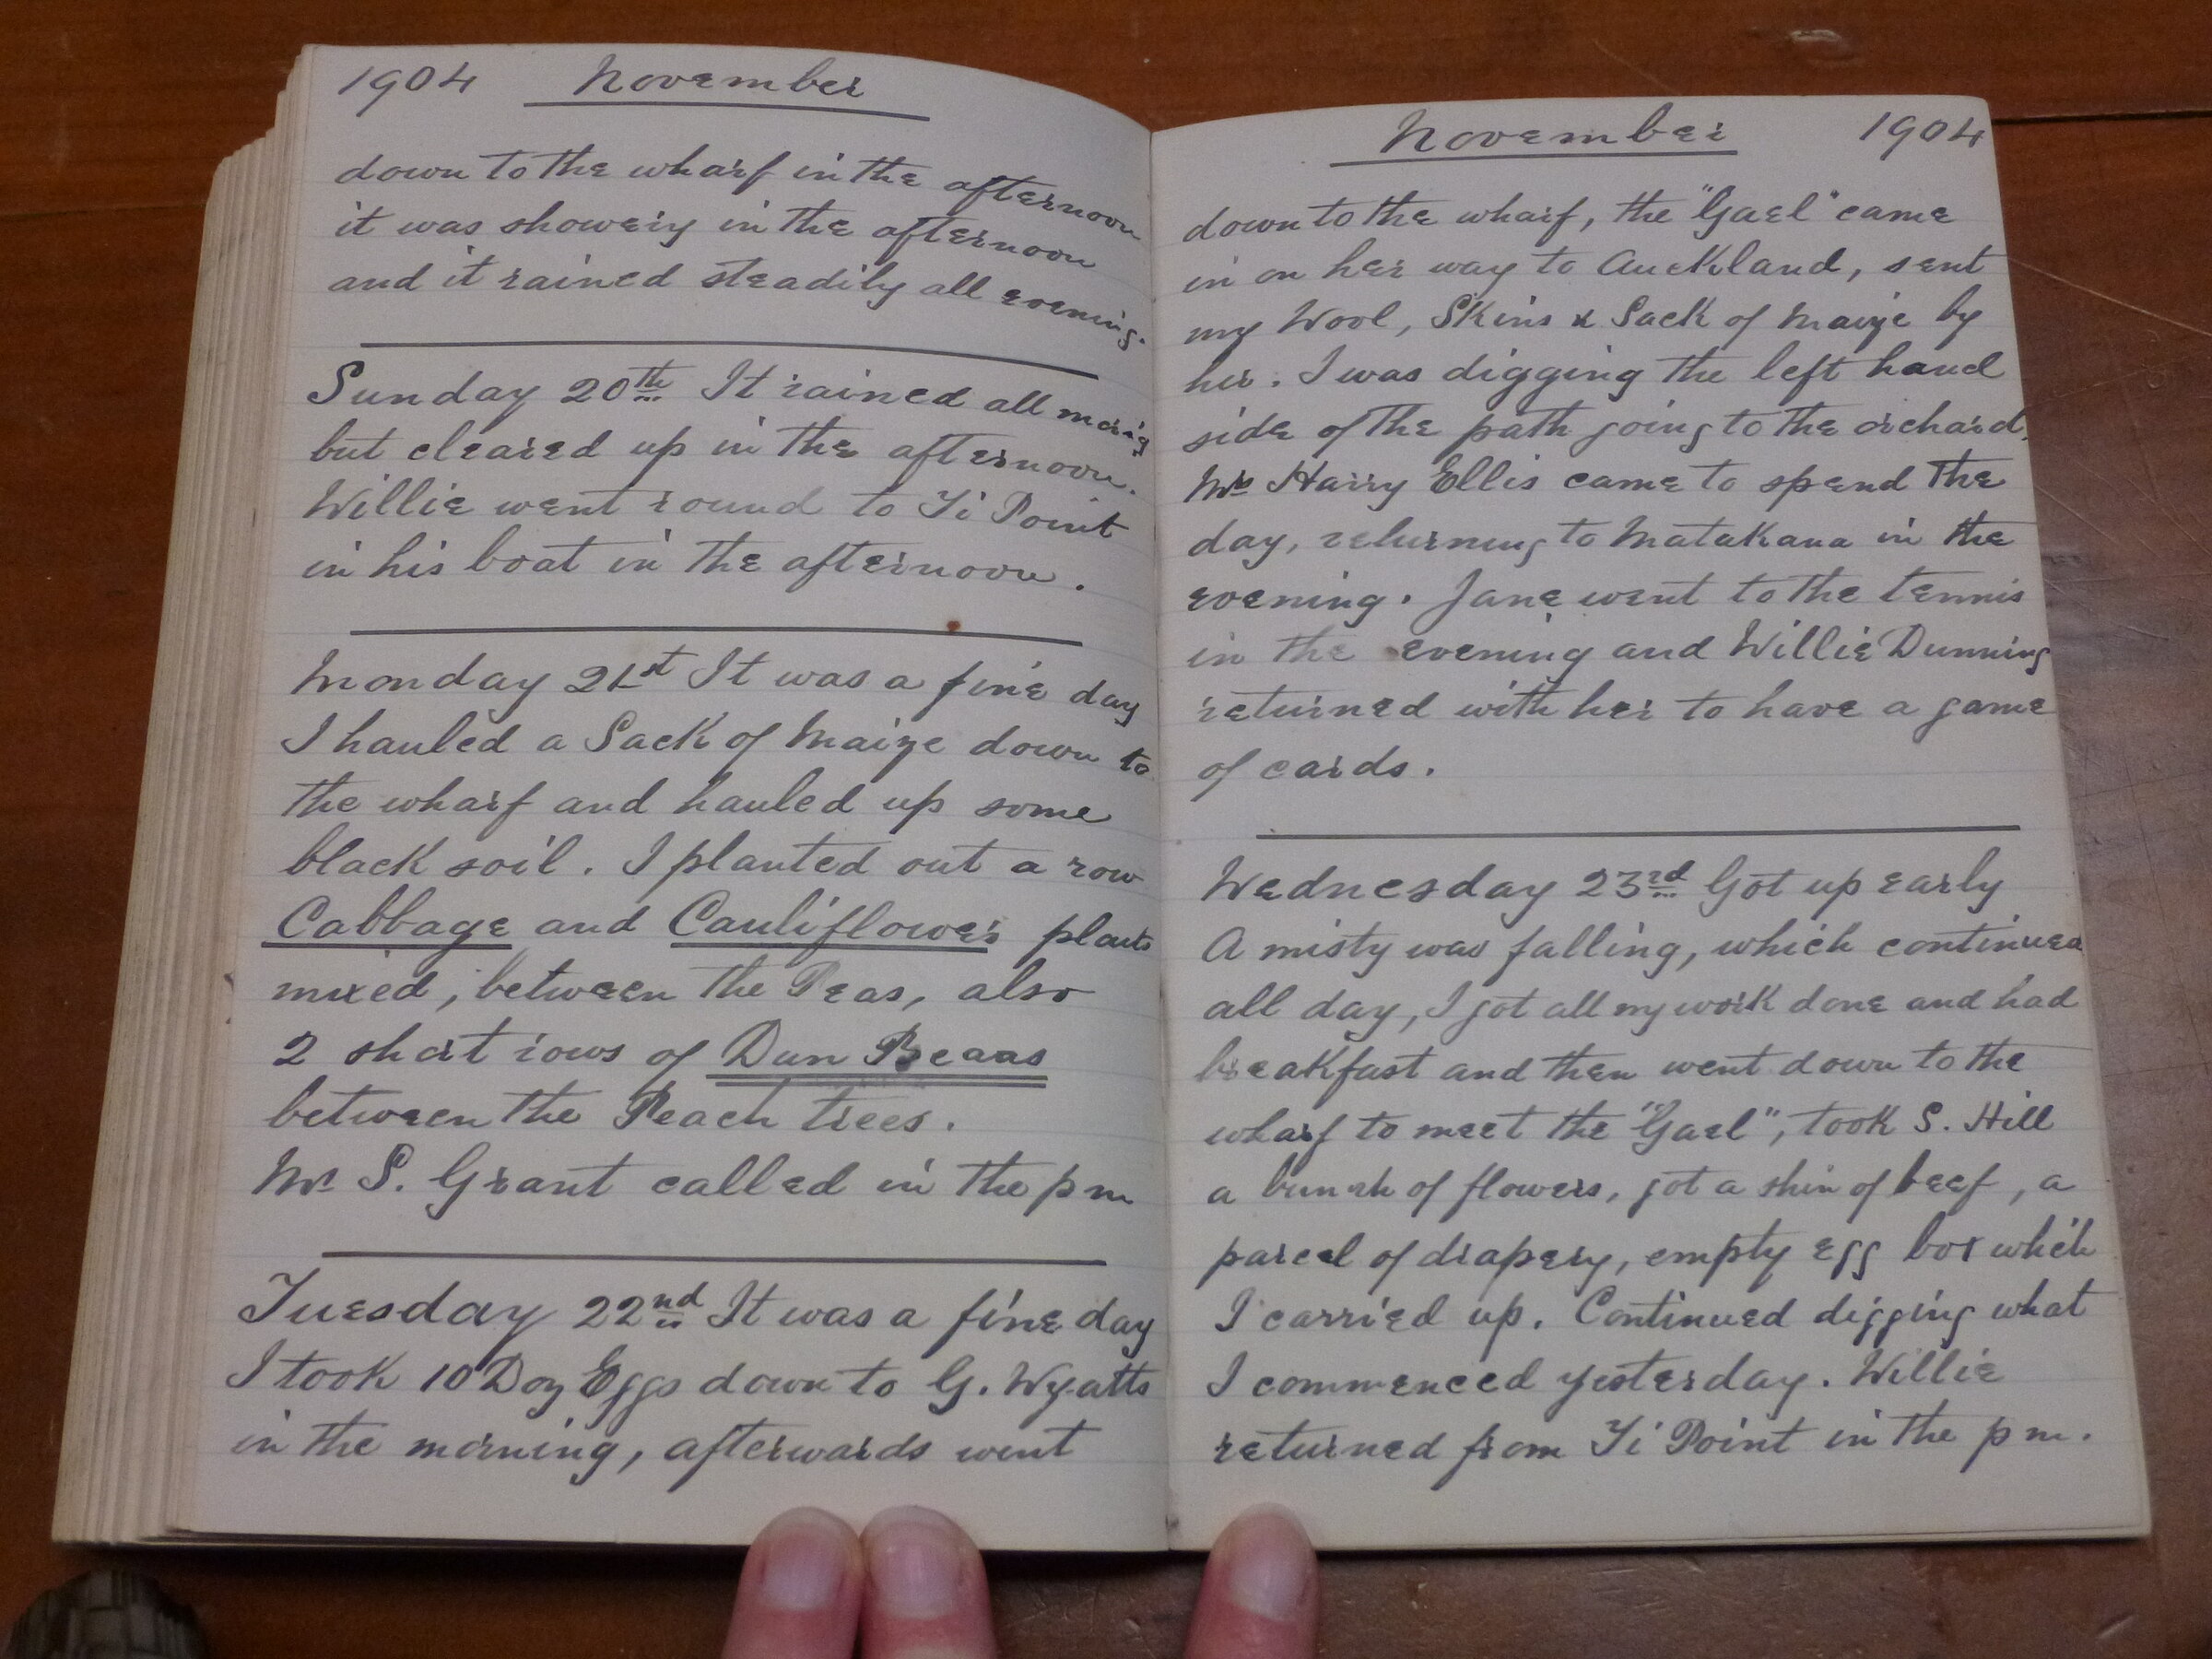 1904 November
down to the wharf in the afternoon
it was showery in the afternoon
and it rained steadily all evening.
Sunday 20th It rained all morng
but cleared up in the afternoon.
Willie went round to Ti Point
in his boat in the afternoon.
Monday 21st It was a fine day
I hauled a Sack of Maize down to
the wharf and hauled up some
black soil. I planted out a row
Cabbage and Cauliflower plants
mixed, between the Peas, also
2 short rows of Dun Beans
between the Peach trees.
Mr S. Grant called in the p m
Tuesday 22nd It was a fine day
I took 10 Doz Eggs down to G. Wyatts
in the morning, afterwards went
November 1904
down to the wharf, the "Gael" came
in on her way to Auckland, sent
my Wool, Skins & Sack of Maize by
her. I was digging the left hand
side of the path going to the orchard.
Mrs Harry Ellis came to spend the
day, returning to Matakana in the
evening. Jane went to the tennis
in the evening and Willie Dunning
returned with her to have a game
of cards.
Wednesday 23rd Got up early
A misty was falling, which continued
all day, I got all my work done and had
breakfast and then went down to the
wharf to meet the "Gael", took S. Hill
a bunch of flowers, got a shin of beef, a
parcel of drapery, empty egg box which
I carried up. Continued digging what
I commenced yesterday. Willie
returned from Ti Point in the p m.